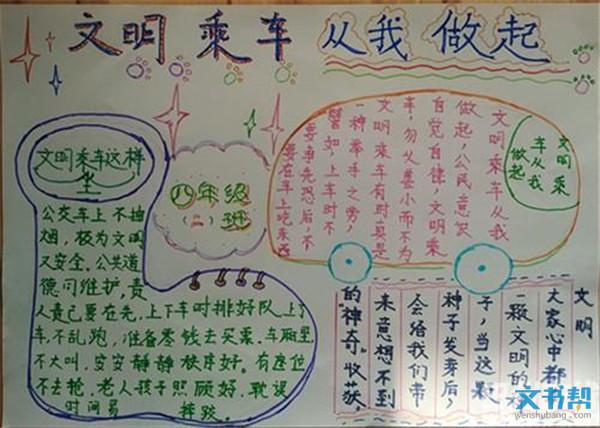 文明乘车 从我做起
文明乘车这样
坐
公交车上不抽
烟,极为文明
又安全。公共道
德同维护,责
人责己要在先,上下车时排好队 上了
车,不乱跑,准备零钱去买票。车厢里
不大叫,安安静静秩序好。有座位
不去抢。老人孩子照顾好,耽误
时间易 摔跤。
八年级
班
文明乘车从我
做起,公民意识
自觉自律,文明乘
车,勿以善小而不为
文明乘车有时真是
一种举手之劳,
譬如,上车时不
要争先恐后,不
要在车上吃东西
文明乘
车从我
做起
文明
大家心中都
一颗文明的
子,当这颗
种子发芽后,
会给我们带
来意想不到
的"神奇"收获,
文书帮
wenshubang.com